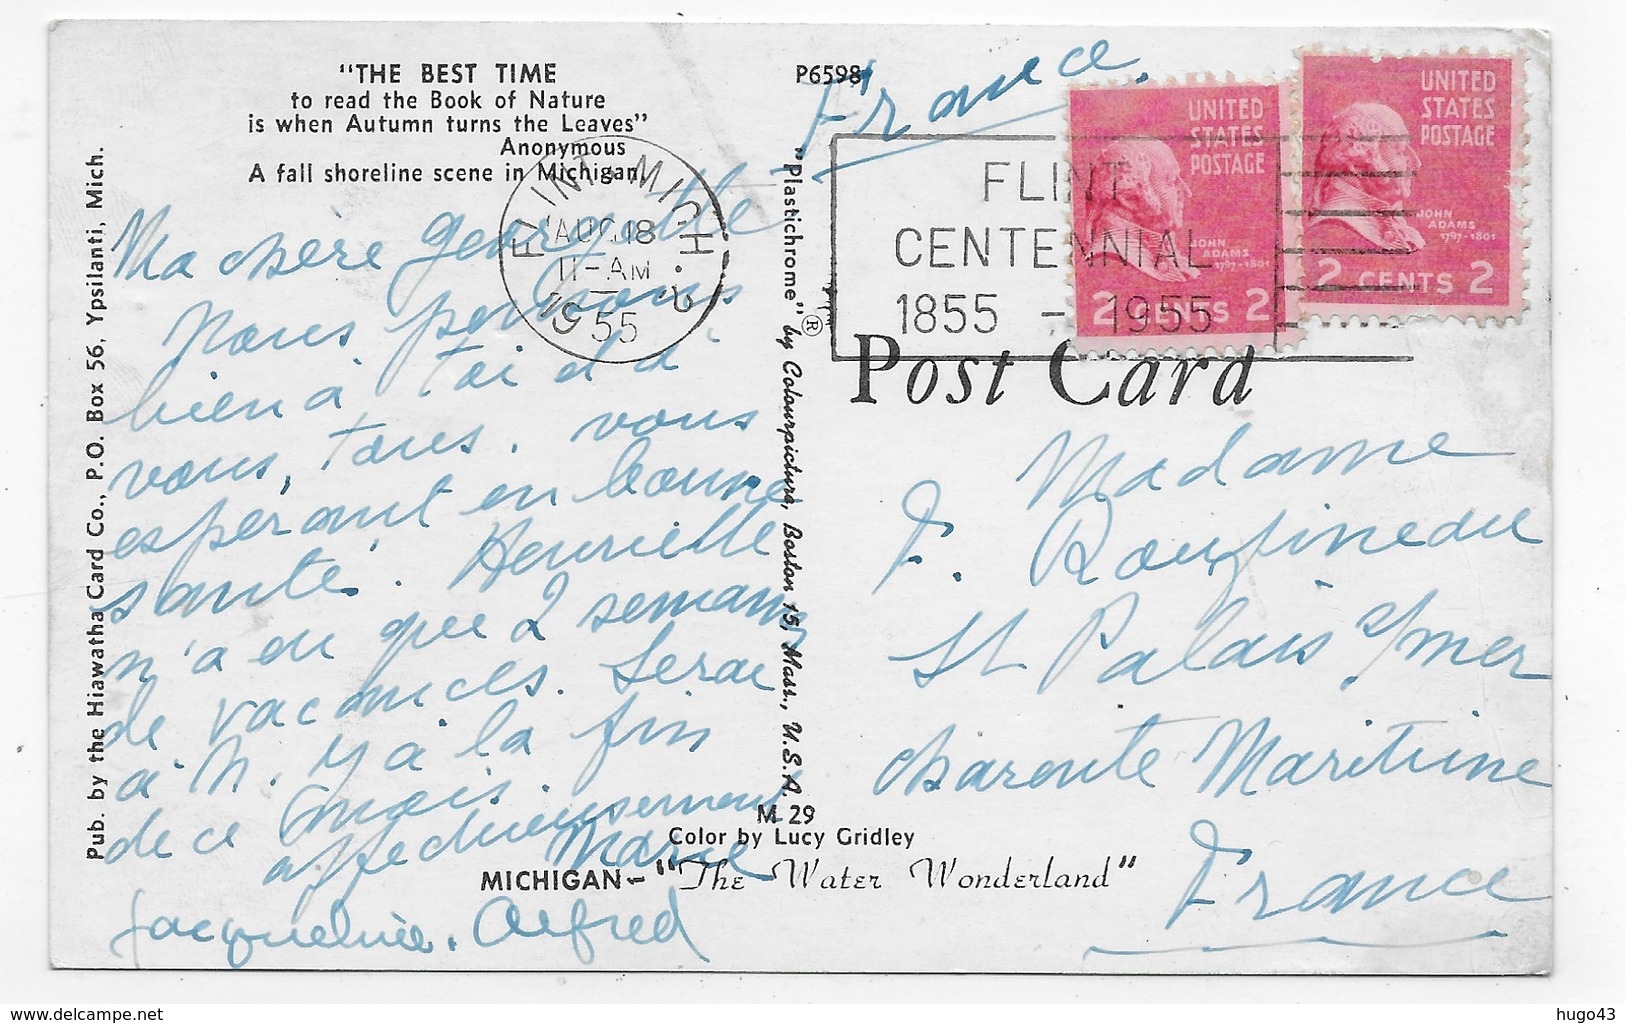 "THE BEST TIME
to read the Book of Nature
is when Autumn turns the Leaves"
Anonymous
A fall shoreline scene in Michigan.
Ma chère Georgette
Nous pensons
bien à toi et à
vous, tous. vous
esperant en bonne
santé. Henriette
n'a eu que 2 semaines
de vacances. Serai
à N. y à la fin
de ce mois.
affectueusement
Marie
Jacqueline. Alfred
Pub. by the Hiawatha Card Co., P.O. Box 56, Ypsilanti, Mich.
"Plastichrome" ® by Colourpicture, Boston 15, Mass., U.S.A.
P6598
France.
FLINT, MICH.
AUG 18
11-AM
1955
FLINT
CENTENNIAL
1855 - 1955
UNITED
STATES
POSTAGE
JOHN
ADAMS
1797-1801
2 CENTS 2
UNITED
STATES
POSTAGE
JOHN
ADAMS
1797-1801
2 CENTS 2
Post Card
Madame
F. Roufineau
St Palais s/mer
Charente Maritime
France
M 29
Color by Lucy Gridley
MICHIGAN- "The Water Wonderland"
www.delcampe.net
hugo43